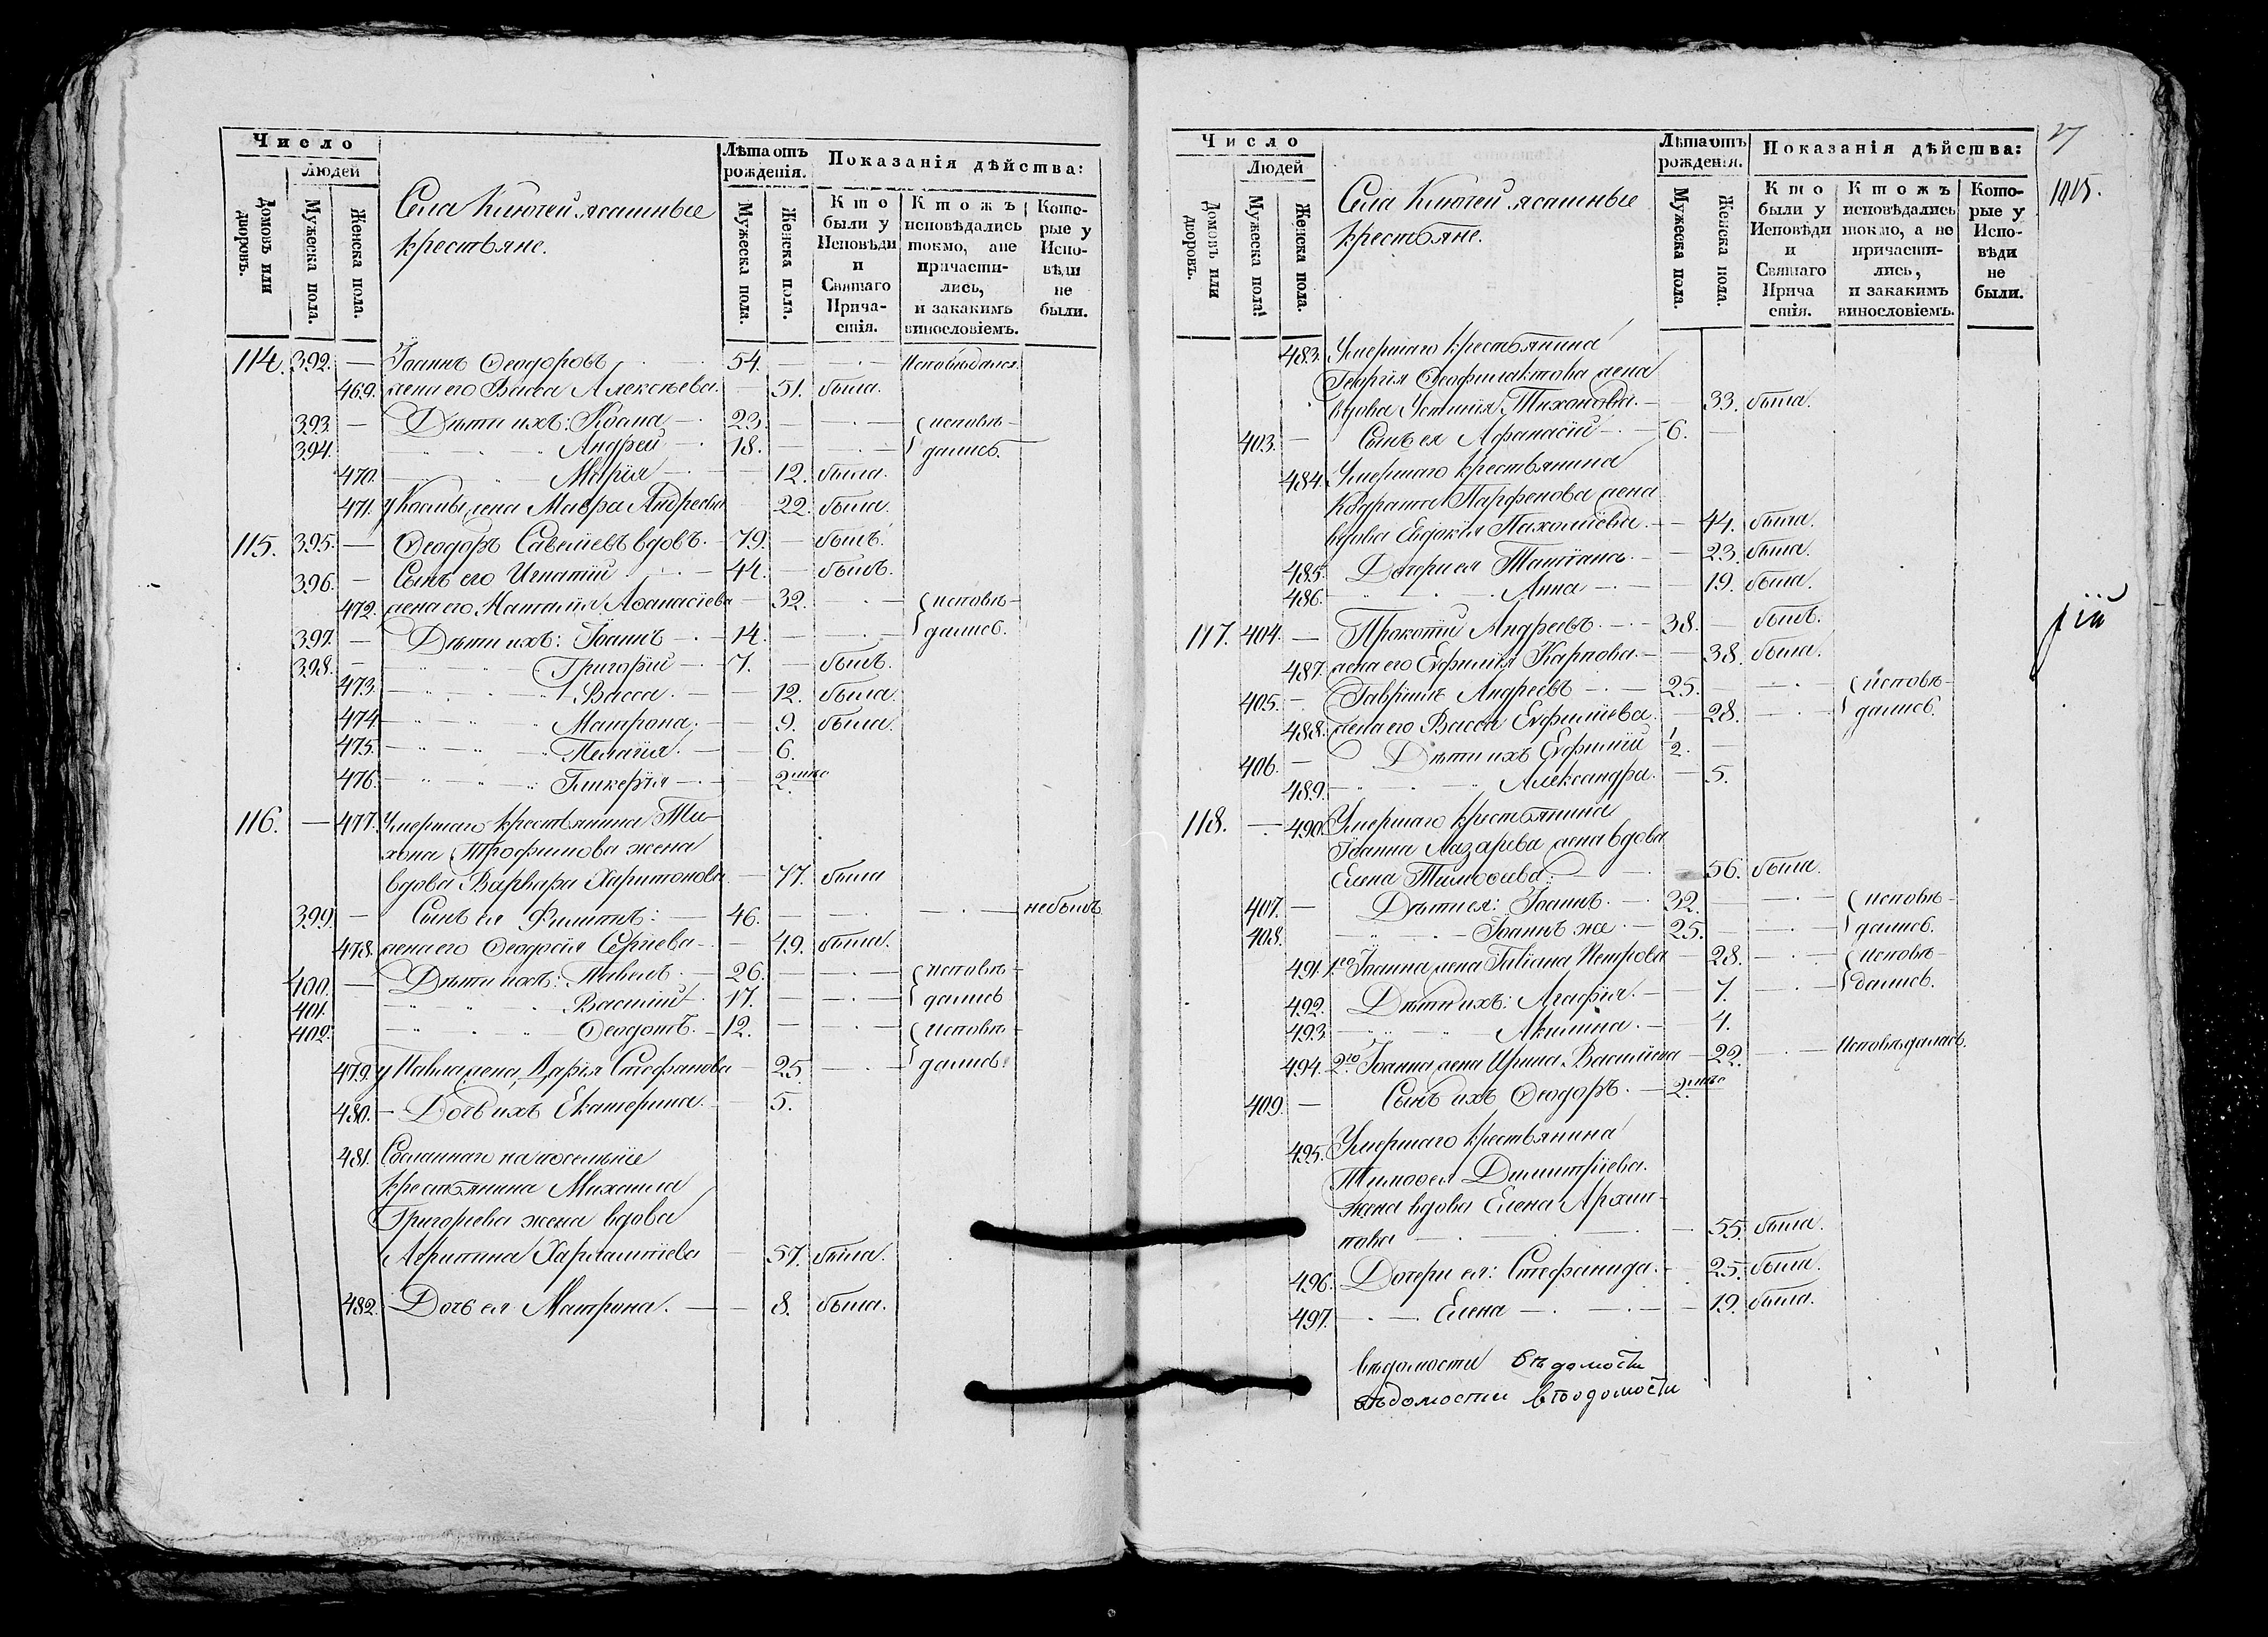 Число
Людей
Домовъ или дворовъ.
Мужеска пола.
Женска пола.
Села Ключей ясашные
крестьяне.
Лѣта отъ рожденія.
Мужеска пола.
Женска пола.
Показанія дѣйства:
Кто были у Исповѣди и Святаго Прича-стія.
Ктожъ исповѣдались токмо, ане причасти-лись, и закакимъ винословіемъ.
Кото-рые у Испо-вѣди не были.
114. 392. — Іоаннъ Ѳеодоровъ 54. — Исповѣдался.
469. жена его Васса Алексѣева. 51. была.
393. — Дѣти ихъ: Косма 23. — исповѣ-
394. Андрей 18. — дались.
470. Марія 12. была.
471. у Космы жена Мавра Андреева 22. была.
115. 395. — Ѳеодоръ Савельевъ вдовъ. 79. — былъ.
396. — Сынъ его Игнатій 44. — былъ.
472. жена его Наталія Аѳанасіева 32. — исповѣ-
397. — Дѣти ихъ: Іоаннъ 14. — дались.
398. — Григорій 7. — былъ.
473. Васса. 12. была.
474. Матрона. 9. была.
475. Пелагія. 6.
476. Гликерія 2.
116. — 477. Умершаго крестьянина Ти-
хона Трофимова жена
вдова Варвара Харитонова 77. была
399. — Сынъ ея Филиппъ: 46. — небылъ
478. жена его Ѳеодосія Сергіева 49. была.
400. — Дѣти ихъ: Павелъ 26. — исповѣ-
401. Василій 17. — дались
402. Ѳеодотъ. 12. — исповѣ-
479. у Павла жена Дарія Стефанова 25. — дались.
480. Дочь ихъ Екатерина. 5.
481. Сосланнаго на поселеніе
крестьянина Михаила
Григорьева жена вдова
Агрипина Харлампіева 57. была.
482. Дочь ея Матрона. 8. была.
Число
Людей
Домовъ или дворовъ.
Мужеска пола.
Женска пола.
Села Ключей ясашные
крестьяне.
Лѣта отъ рожденія.
Мужеска пола.
Женска пола.
Показанія дѣйства:
Кто были у Исповѣди и Святаго Прича стія.
Ктожъ исповѣдались токмо, а не причасти-лись, и закакимъ винословіемъ.
Кото-рые у Испо-вѣди не были.
27
483. Умершаго крестьянина
Георгія Ѳеофилактова жена
вдова Устинія Тихонова. 33. была.
403. — Сынъ ея Афанасій 6. —
484. Умершаго крестьянина
Кодрата Парфенова жена
вдова Евдокія Пахоміева. 44. была.
485. Дочери ея Татіана 23. была.
486. Анна 19. была.
117. 404. — Прокопій Андреевъ. 38. — былъ.
487. жена его Евфимія Карпова. 38. была.
405. — Гавріилъ Андреевъ 25. — исповѣ-
488. жена его Васса Евфиміева. 28. — дались.
406. — Дѣти ихъ Евфимій 1/2. —
489. Александра. 5.
118. — 490. Умершаго крестьянина
Іоанна Лазарева жена вдова
Елена Тимоѳеева. 56. была.
407. — Дѣти ея: Іоаннъ. 32. — исповѣ-
408. Іоаннъ же 25. — дались.
491. 1го Іоанна жена Гліана Петрова 28. — исповѣ-
492. Дѣти ихъ: Агафія. 7. — дались.
493. Акилина. 4.
494. 2го Іоанна жена Ирина Васильева 22. — Исповѣдалась.
409. — Сынъ ихъ Ѳеодоръ. 2.
495. Умершаго крестьянина
Тимоѳея Димитріева
жена вдова Елена Архип-
пова 55. была.
496. Дочери ея: Стефанида. 25. была.
497. Елена 19. была.
вѣдомости вѣдомости
вѣдомости вѣдомости